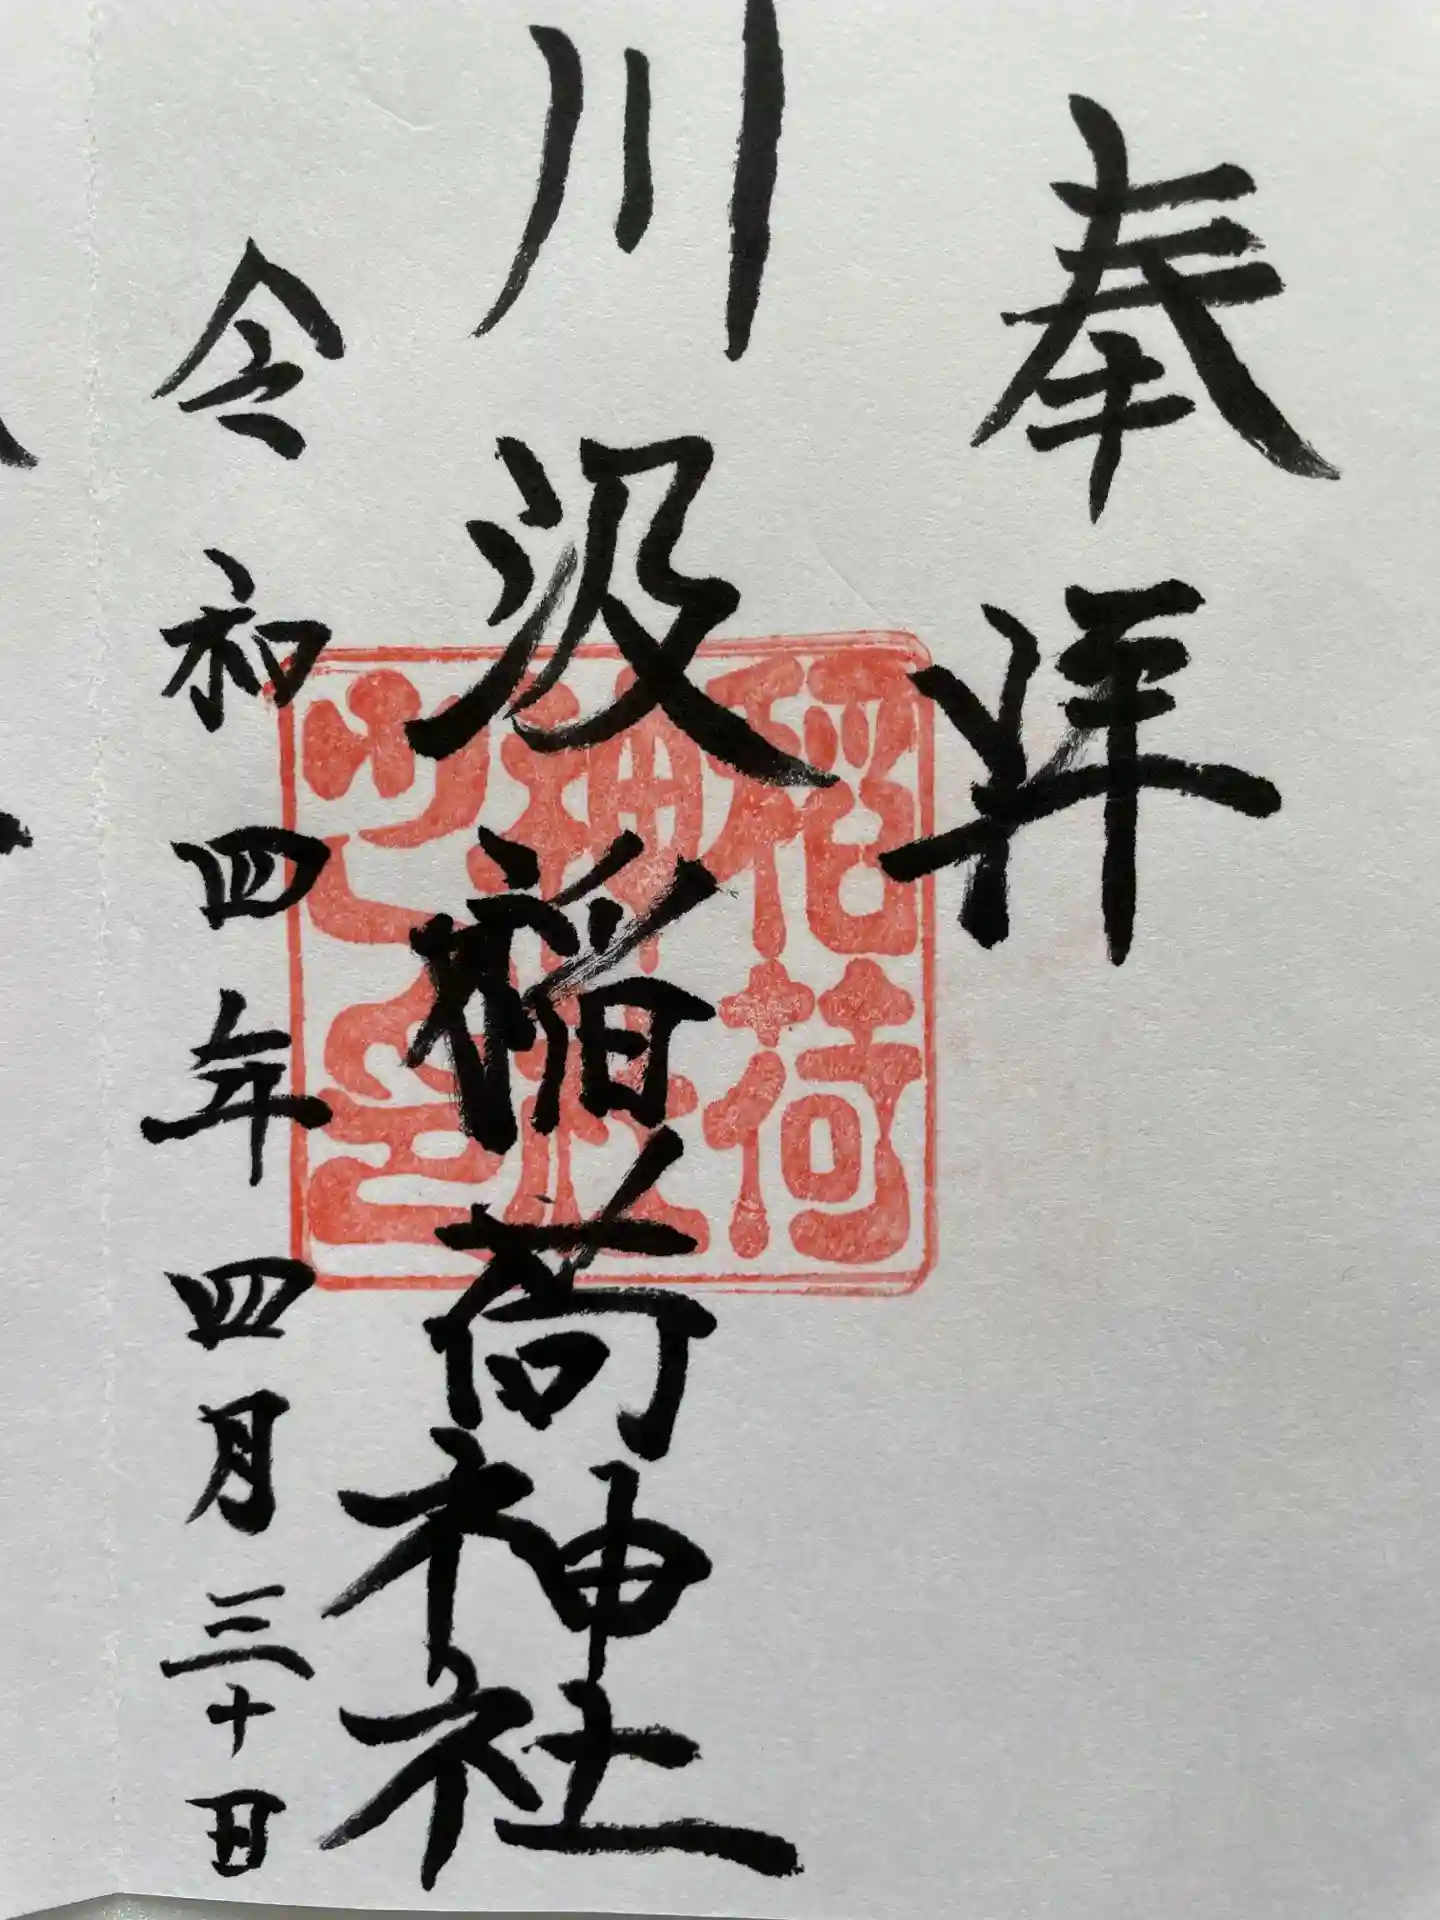 奉拝
川汲稲荷神社
稲荷
神社
之印
令和四年四月三十日